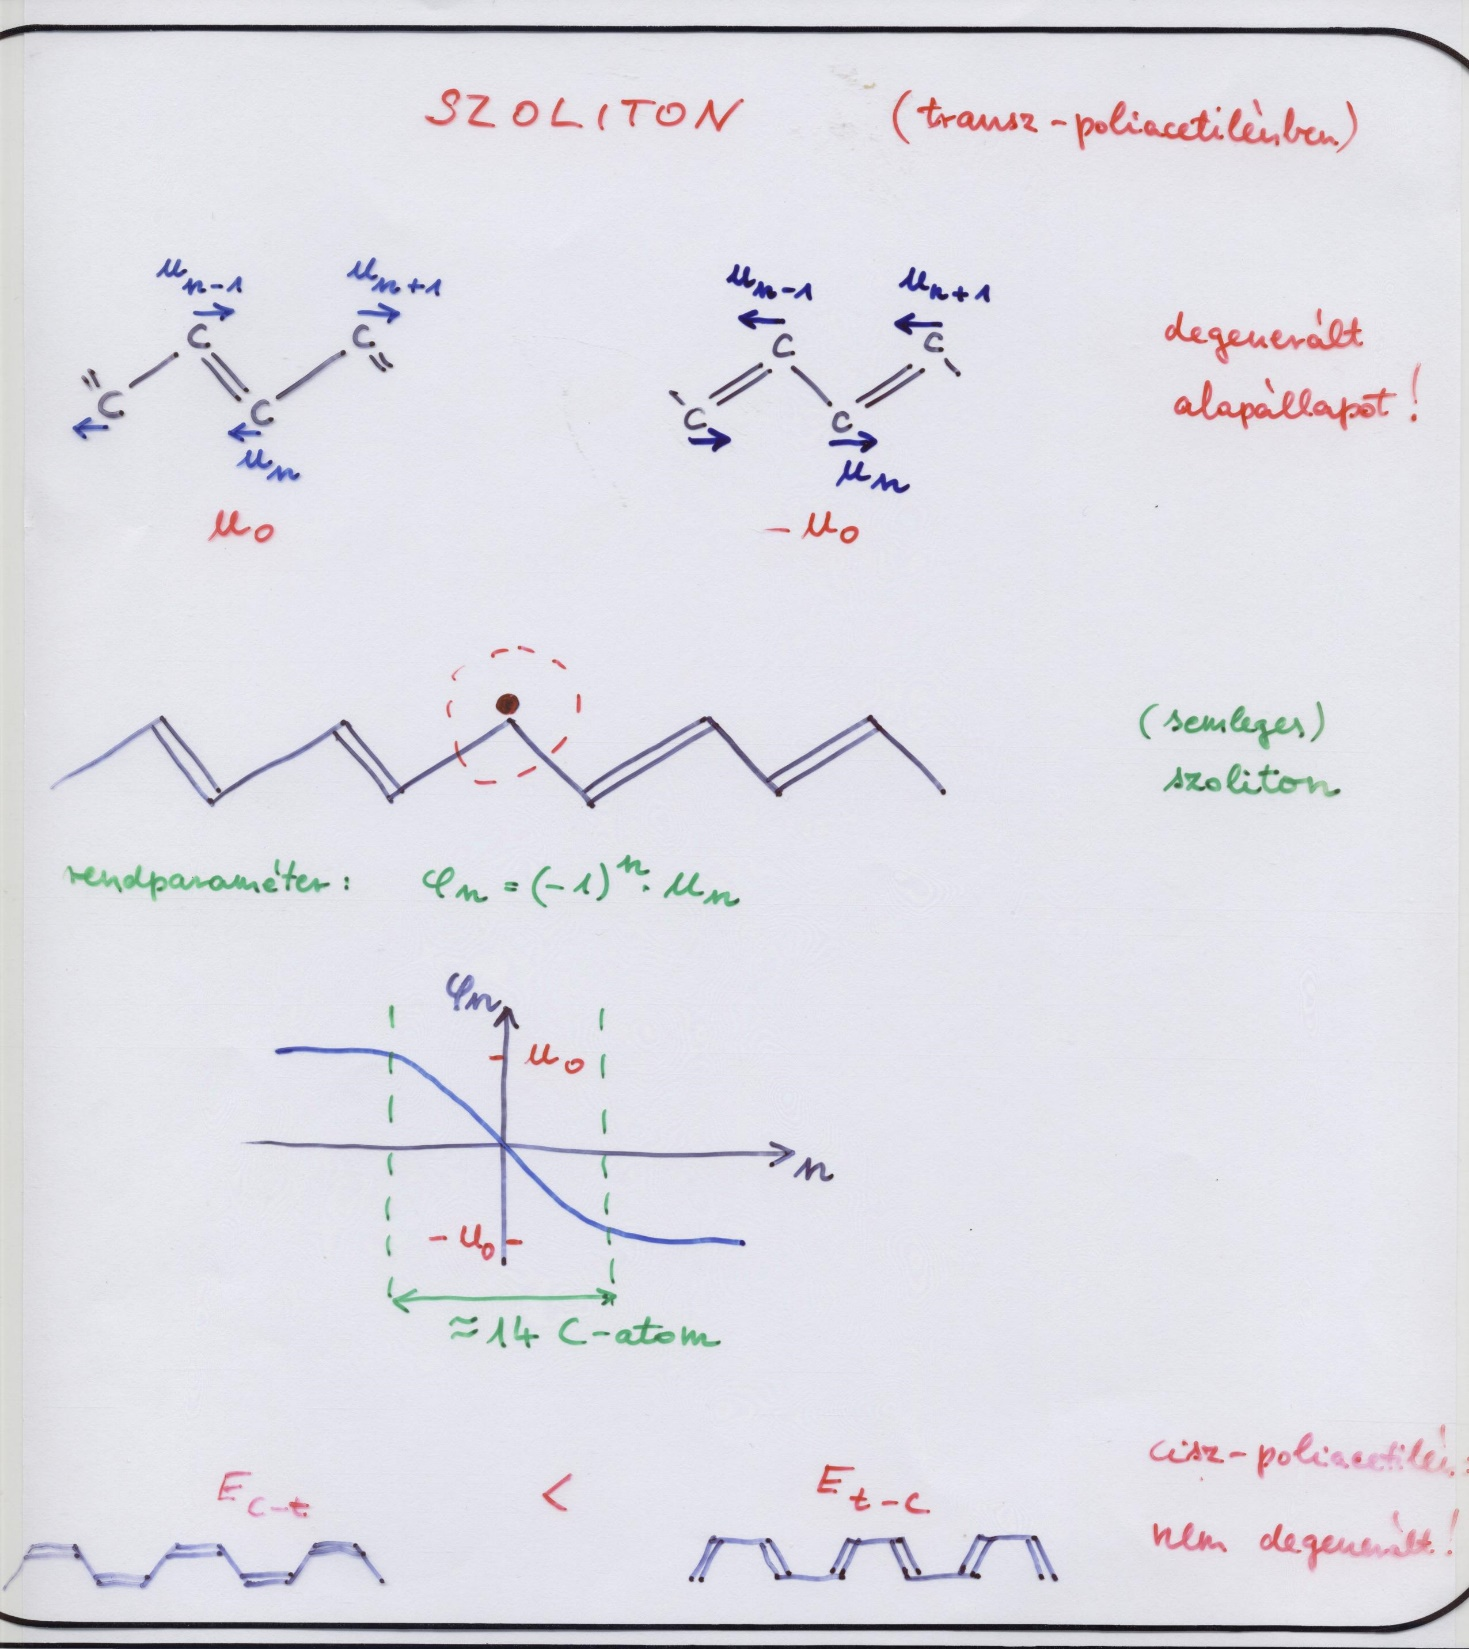 SZOLITON (transz-poliacetilénben)
u_{n-1} u_{n+1} u_{n-1} u_{n+1}
C C C C
C C C C
u_n u_n
u_0 -u_0
degenerált
alapállapot!
(semleges)
szoliton
rendparaméter: φ_n = (-1)^n · u_n
φ_n
u_0
n
-u_0
≈14 C-atom
E_{c-t} < E_{t-c}
cisz-poliacetilén:
nem degenerált!